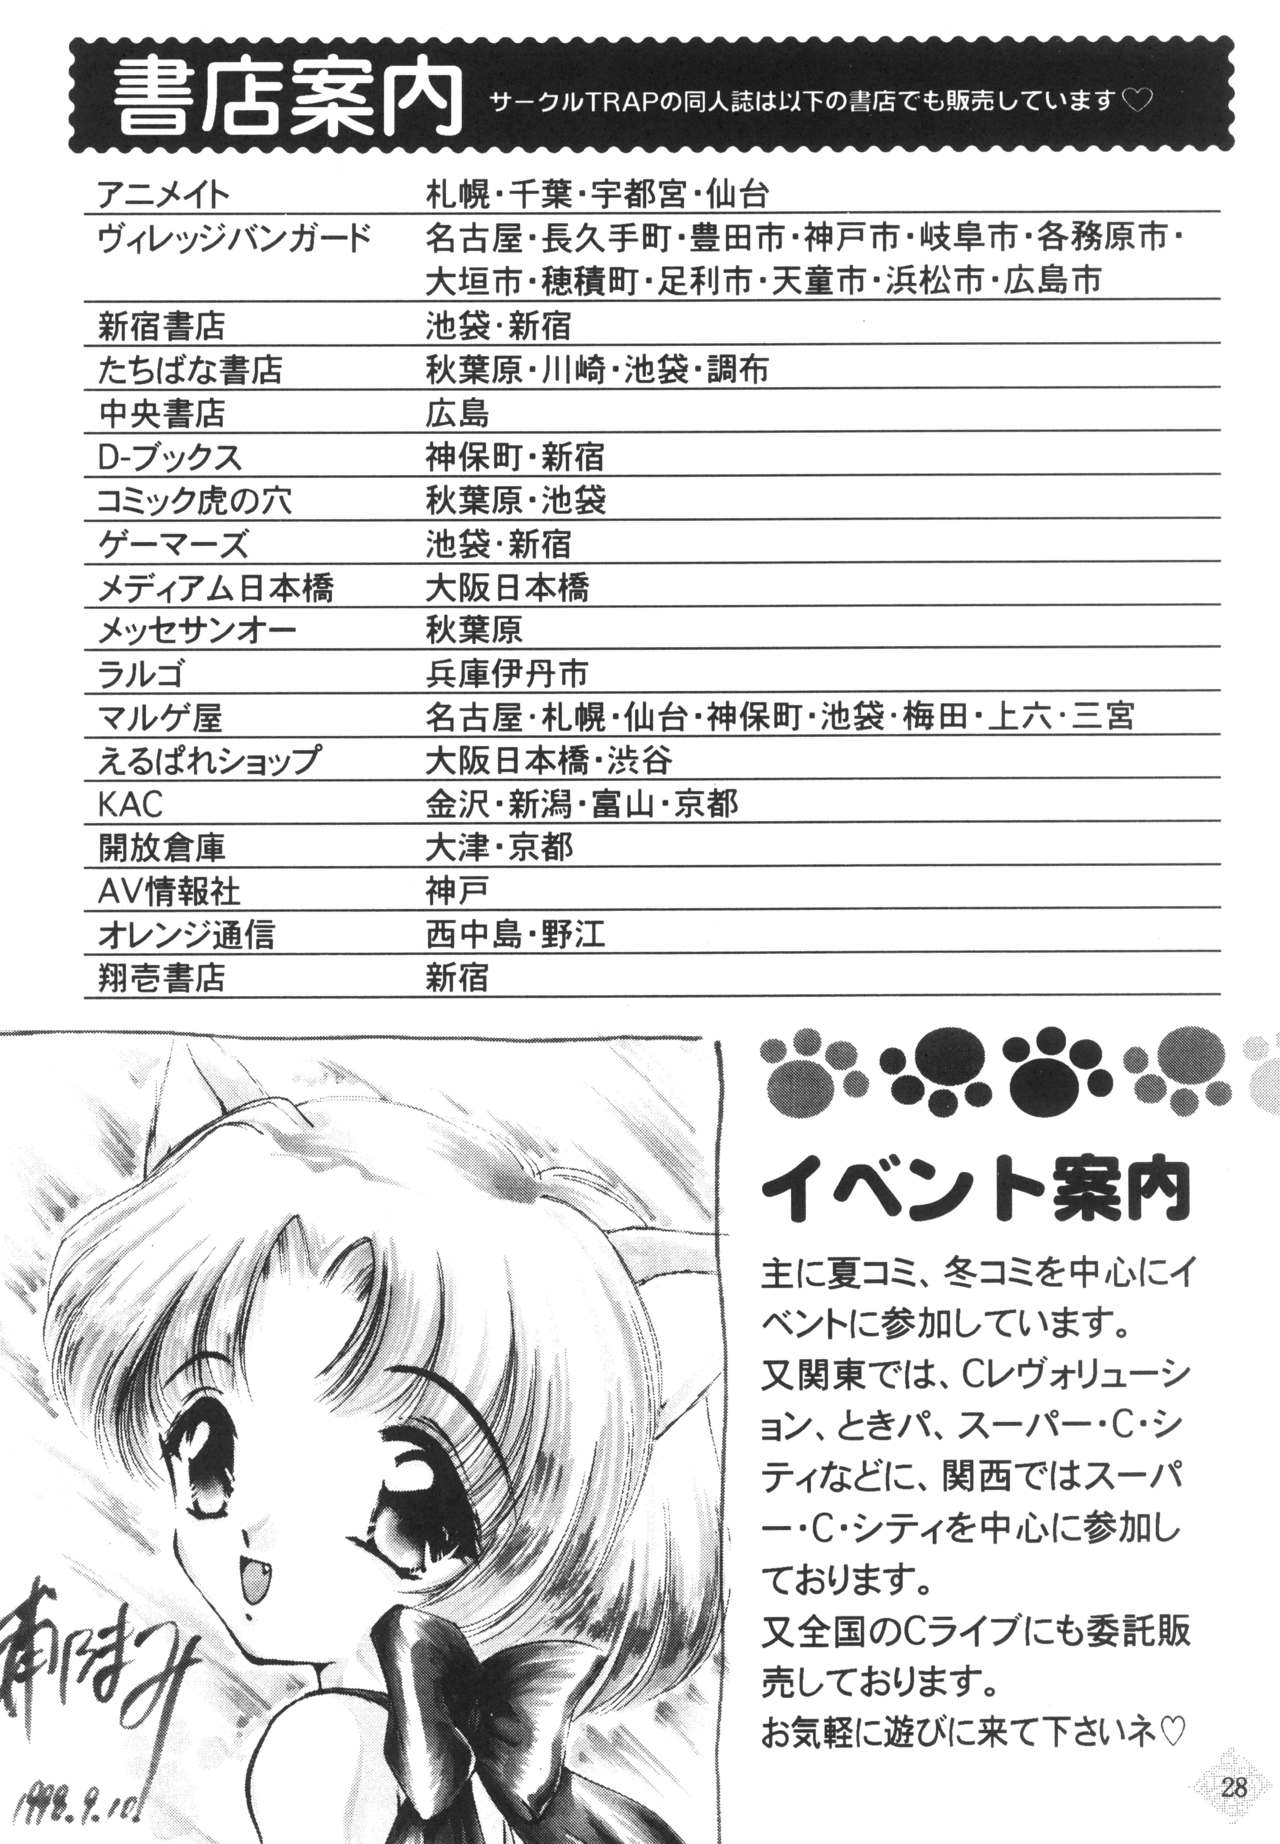 書店案内 サークルTRAPの同人誌は以下の書店でも販売しています♡
アニメイト 札幌・千葉・宇都宮・仙台
ヴィレッジバンガード 名古屋・長久手町・豊田市・神戸市・岐阜市・各務原市・
大垣市・穂積町・足利市・天童市・浜松市・広島市
新宿書店 池袋・新宿
たちばな書店 秋葉原・川崎・池袋・調布
中央書店 広島
D-ブックス 神保町・新宿
コミック虎の穴 秋葉原・池袋
ゲーマーズ 池袋・新宿
メディアム日本橋 大阪日本橋
メッセサンオー 秋葉原
ラルゴ 兵庫伊丹市
マルゲ屋 名古屋・札幌・仙台・神保町・池袋・梅田・上六・三宮
えるぱれショップ 大阪日本橋・渋谷
KAC 金沢・新潟・富山・京都
開放倉庫 大津・京都
AV情報社 神戸
オレンジ通信 西中島・野江
翔壱書店 新宿
イベント案内
主に夏コミ、冬コミを中心にイ
ベントに参加しています。
又関東では、Cレヴォリューシ
ョン、ときパ、スーパー・C・シ
ティなどに、関西ではスーパ
ー・C・シティを中心に参加し
ております。
又全国のCライブにも委託販
売しております。
お気軽に遊びに来て下さいネ♡
1998.9.10.
28